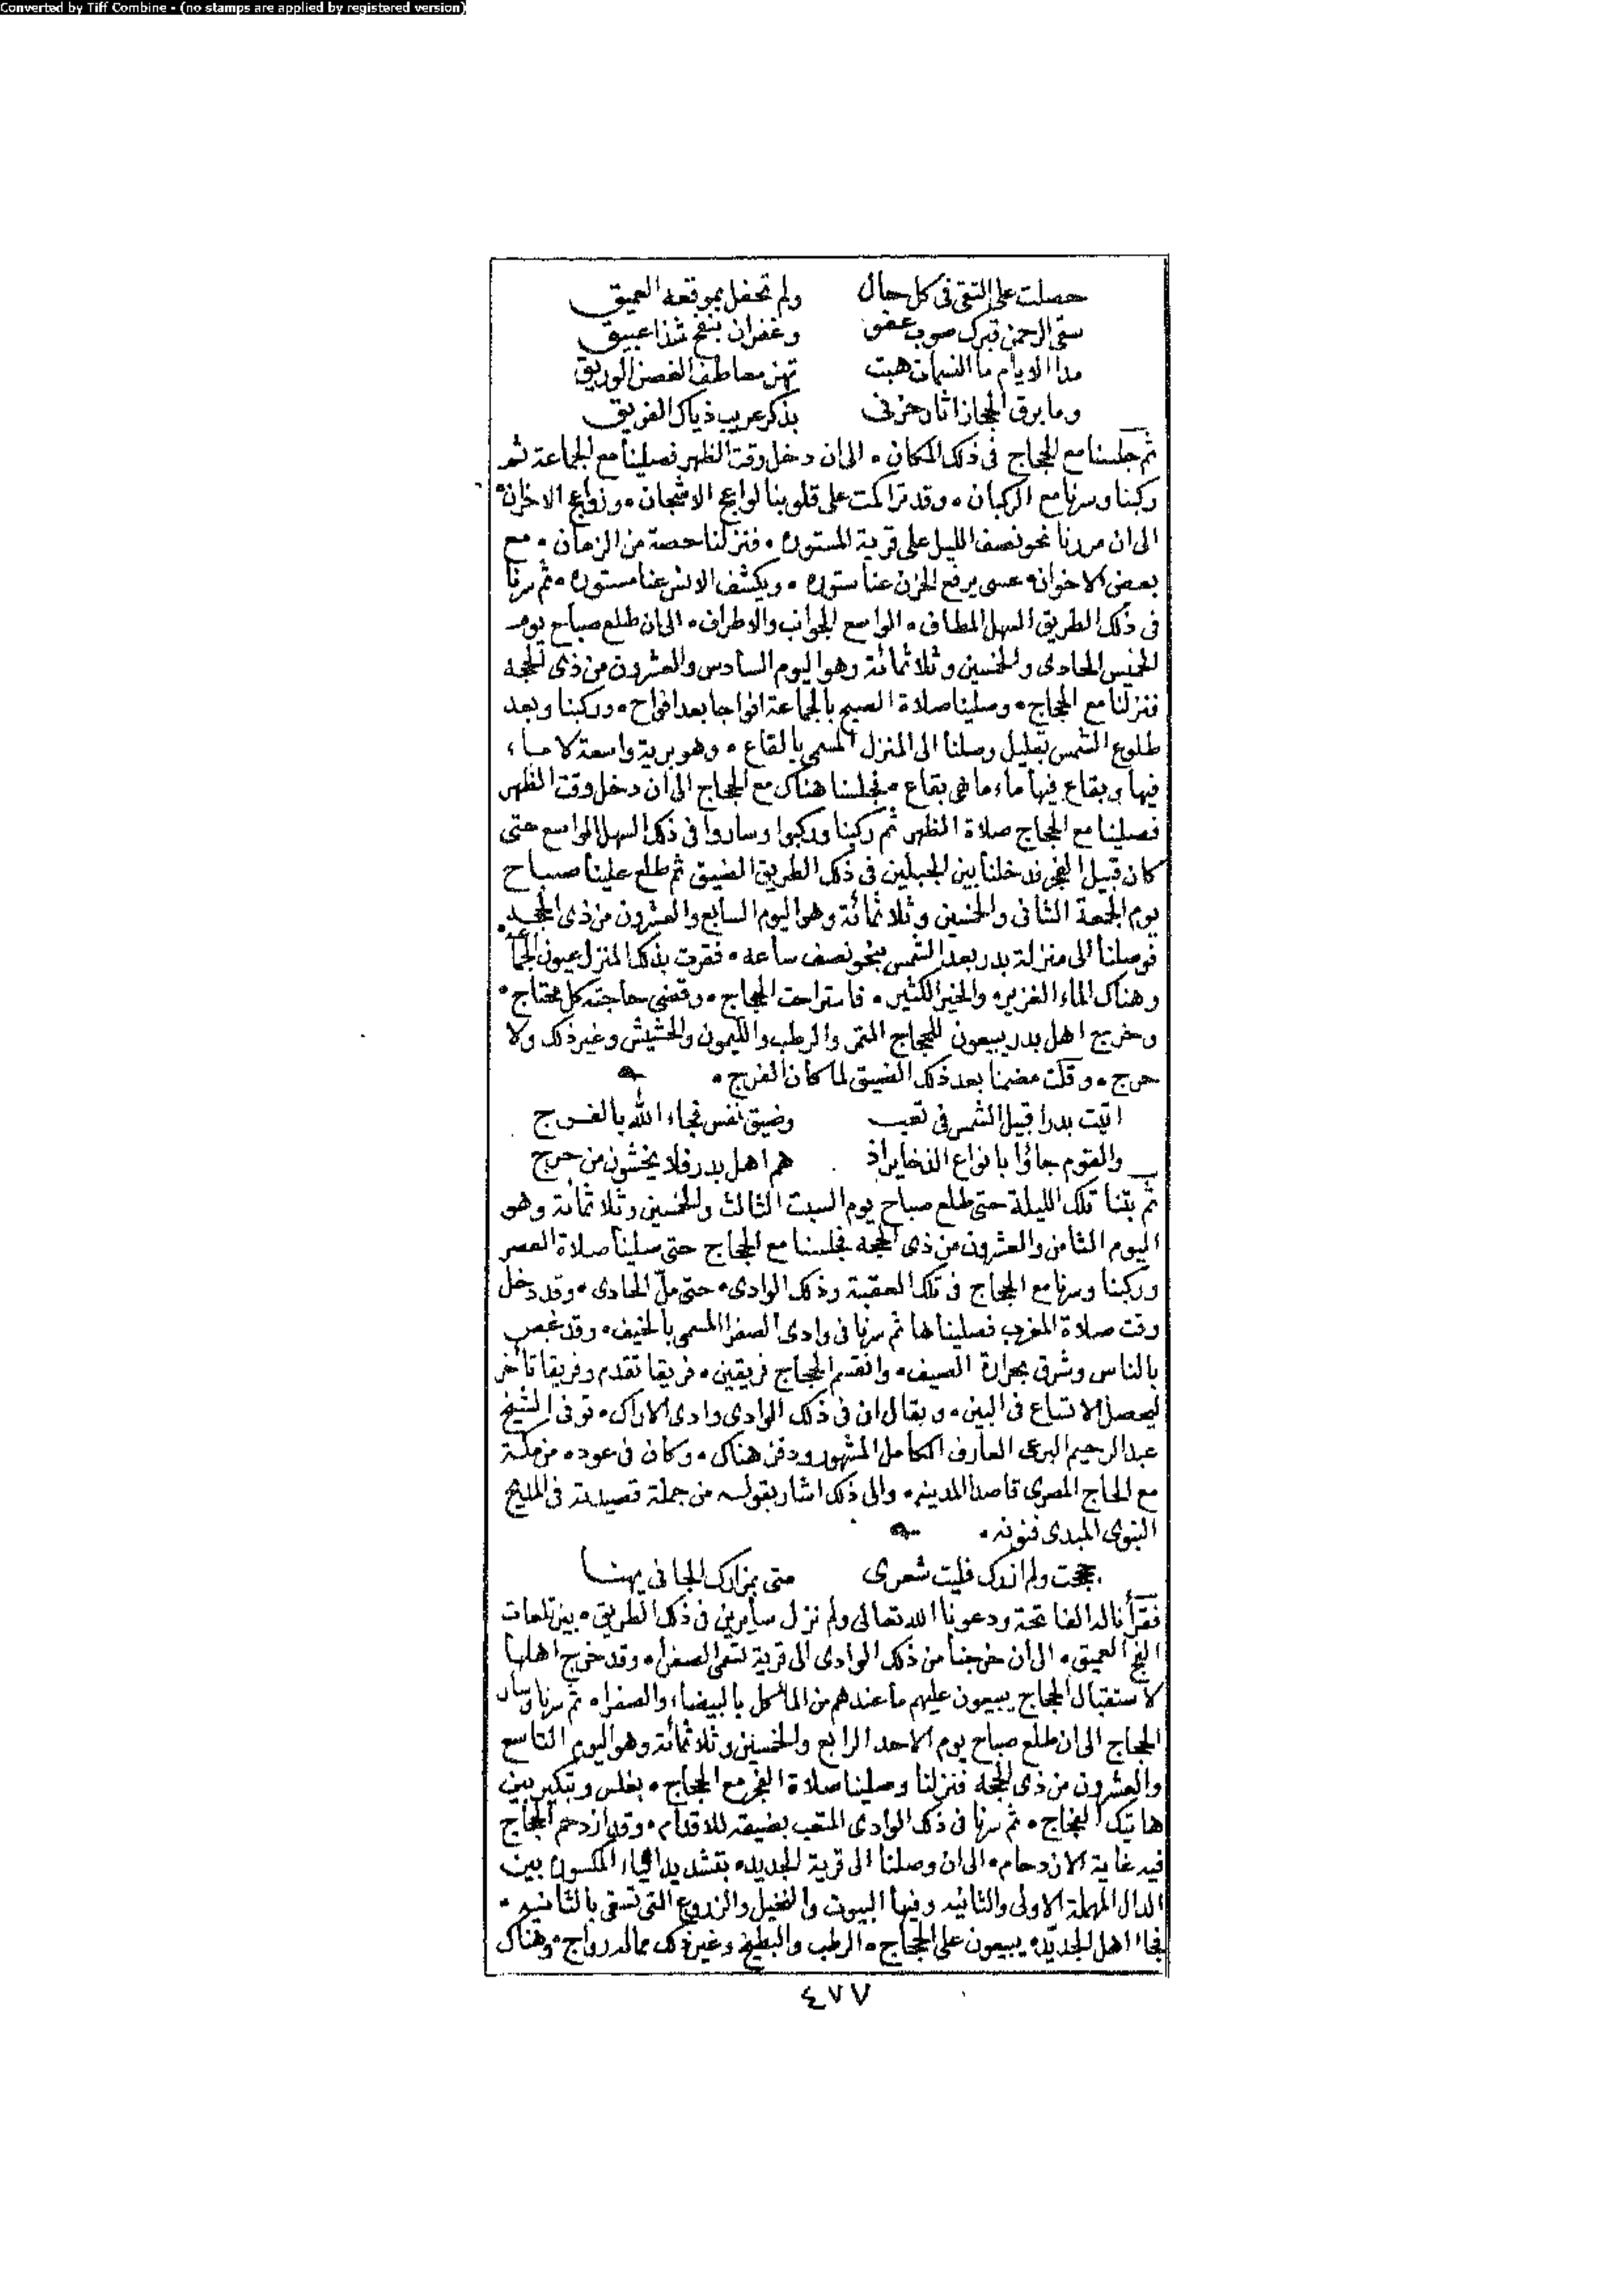 Converted by Tiff Combine - (no stamps are applied by registered version)
حصلت على التقى فى كل حال ولم تحفل بموقعه العميق
سقى الرحمن قبرك صوب عفو وغفران بنفح شذا عبيق
مدا الايام ما النسمات هبت تهز معاطف الغصن الوريق
وما برق الحجاز اثار حزنى بذكر عريب ذياك الفريق
ثم جلسنا مع الحجاج فى ذلك المكان * الى ان دخل وقت الظهر فصلينا مع الجماعة ثم
ركبنا وسرنا مع الركبان * وقد تراكمت على قلوبنا لواعج الاشجان * وزوابع الاحزان *
الى ان مررنا نحو نصف الليل على قرية المستوره * فنزلنا حصة من الزمان * مع
بعض الاخوان * عسى يرفع الحزن عنا ستوره * ويكشف الانس عنا مستوره * ثم سرنا
فى ذلك الطريق السهل المطاف * الواسع الجوانب والاطراف * الى ان طلع صباح يوم
الخميس الحادى والخمسين وثلاثمائة وهو اليوم السادس والعشرون من ذى الحجه
فنزلنا مع الحجاج * وصلينا صلاة الصبح بالجماعة افواجا بعد افواج * وركبنا وبعد
طلوع الشمس بقليل وصلنا الى المنزل المسمى بالقاع * وهو برية واسعة لا ماء
فيها وبقاع فيها ماء ما هى بقاع * فجلسنا هناك مع الحجاج الى ان دخل وقت الظهر
فصلينا مع الحجاج صلاة الظهر ثم ركبنا وركبوا وساروا فى ذلك السهل الواسع حتى
كان قبيل الفجر فدخلنا بين الجبلين فى ذلك الطريق الضيق ثم طلع علينا صباح
يوم الجمعة الثانى والخمسين وثلاثمائة وهو اليوم السابع والعشرون من ذى الحجه
فوصلنا الى منزلة بدر بعد الشمس بنحو نصف ساعه * فقرت بذلك المنزل عيون الجماعه
وهناك الماء الغزير * والخير الكثير * فاستراحت الحجاج * وقضى حاجته كل محتاج *
وخرج اهل بدر يبيعون للحجاج التمر والرطب والليمون والحشيش وغير ذلك ولا
حرج * وقلت مضمنا بعد ذلك الضيق لما كان الفرج *
اتيت بدرا قبيل الشمس فى تعب وضيق نفس فجاء الله بالفرج
والقوم جاؤا بانواع الذخاير اذ هم اهل بدر فلا يخشون من حرج
ثم بتنا تلك الليلة حتى طلع صباح يوم السبت الثالث والخمسين وثلاثمائة وهو
اليوم الثامن والعشرون من ذى الحجه فجلسنا مع الحجاج حتى صلينا صلاة العصر
وركبنا وسرنا مع الحجاج فى تلك العقبة وذلك الوادى * حتى ملّ الحادى * وقد دخل
وقت صلاة المغرب فصليناها ثم سرنا فى وادى الصفرا المسمى بالخيف * وقد غص
بالناس وشرق بحرارة الصيف * وانقسم الحجاج فريقين * فريقا تقدم وفريقا تأخر
ليحصل الاتساع فى البين * ويقال ان فى ذلك الوادى وادى الاراك * توفى الشيخ
عبد الرحيم البرعى العارف الكامل المشهور ودفن هناك * وكان فى عوده من مكة
مع الحاج المصرى قاصدا المدينه * والى ذلك اشار بقوله من جملة قصيدته فى المديح
النبوى المبدى فنونه *
حججت ولم ازرك فليت شعرى متى بمزارك الجانى يهنا
فقرأنا له الفاتحة ودعونا الله تعالى ولم نزل سايرين فى ذلك الطريق * بين تلعات
الفج العميق * الى ان خرجنا من ذلك الوادى الى قرية تسمى الصفرا * وقد خرج اهلها
لاستقبال الحجاج يبيعون عليهم ما عندهم من المأكل بالبيضاء والصفرا * ثم سرنا وسار
الحجاج الى ان طلع صباح يوم الاحد الرابع والخمسين وثلاثمائة وهو اليوم التاسع
والعشرون من ذى الحجه فنزلنا وصلينا صلاة الفجر مع الحجاج * بغلس وتبكير بين
هاتيك الفجاج * ثم سرنا فى ذلك الوادى المتعب بضيقه للاقدام * وقد ازدحم الحجاج
فيه غاية الازدحام * الى ان وصلنا الى قرية الجديده بتشديد الياء المكسورة بين
الدال المهملة الاولى والثانيه وفيها البيوت والنخيل والزروع التى تسقى بالثانيه *
فجاء اهل الجديّده يبيعون على الحجاج * الرطب والبطيخ وغير ذلك مما له رواج * وهناك
٤٧٧